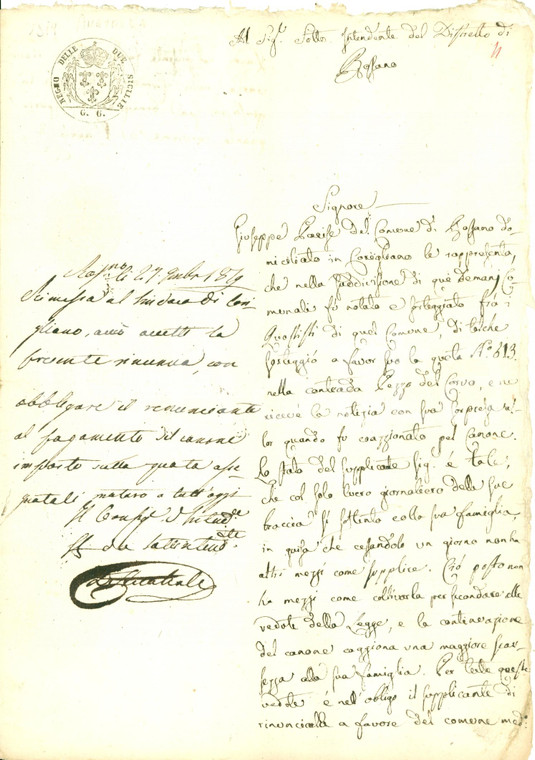 REGNO DELLE DUE SICILIE
G. G.
Al Sig.r Sotto Intendente del Distretto di
Rossano
4
Signore
Giuseppe del Comune di Rossano do-
miciliato in Corigliano le rappresenta,
che nella suddivisione di que' demani co-
munali fù notato e sorteggiato fra i
Quotisti di quel Comune, di talche
sorteggiò a favor suo la quota N.° 613
nella contrada Pezzo del Corvo, e ne
riceve la notizia con sua sorpresa al-
lor quando fu coazzionato pel canone.
Lo stato del supplicante Sig. è tale,
che col solo lucro giornaliero delle sue
braccia si sostenta colla sua famiglia,
in guisa che cessando un giorno non ha
altri mezzi come supplire. Ciò posto non
ha mezzi come coltivarla per secondare alle
vedute della Legge, e la continuazione
del canone caggiona una maggiore scar-
sezza alla sua famiglia. Per tali
vedute è nell'obligo il supplicante di
rinunciarla a favore del comune med.
li 27
Rimessa al Sindaco di Cori-
gliano, accetti la
presente rinunzia, con
obbligare il renunciante
al pagamento del canone
imposto sulla quota asse-
gnatali maturo a tutt'oggi
Il